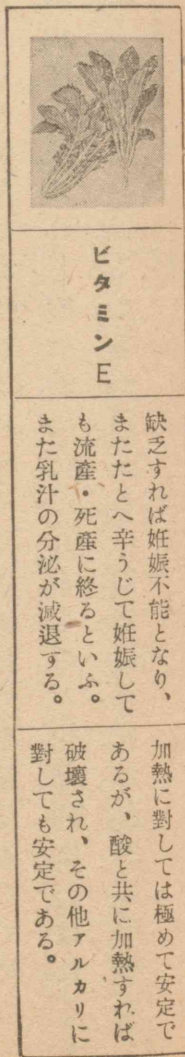 ビタミンE
缺乏すれば姙娠不能となり、
またたとへ辛うじて姙娠して
も流産・死産に終るといふ。
また乳汁の分泌が減退する。
加熱に對しては極めて安定で
あるが、酸と共に加熱すれば
破壞され、その他アルカリに
對しても安定である。